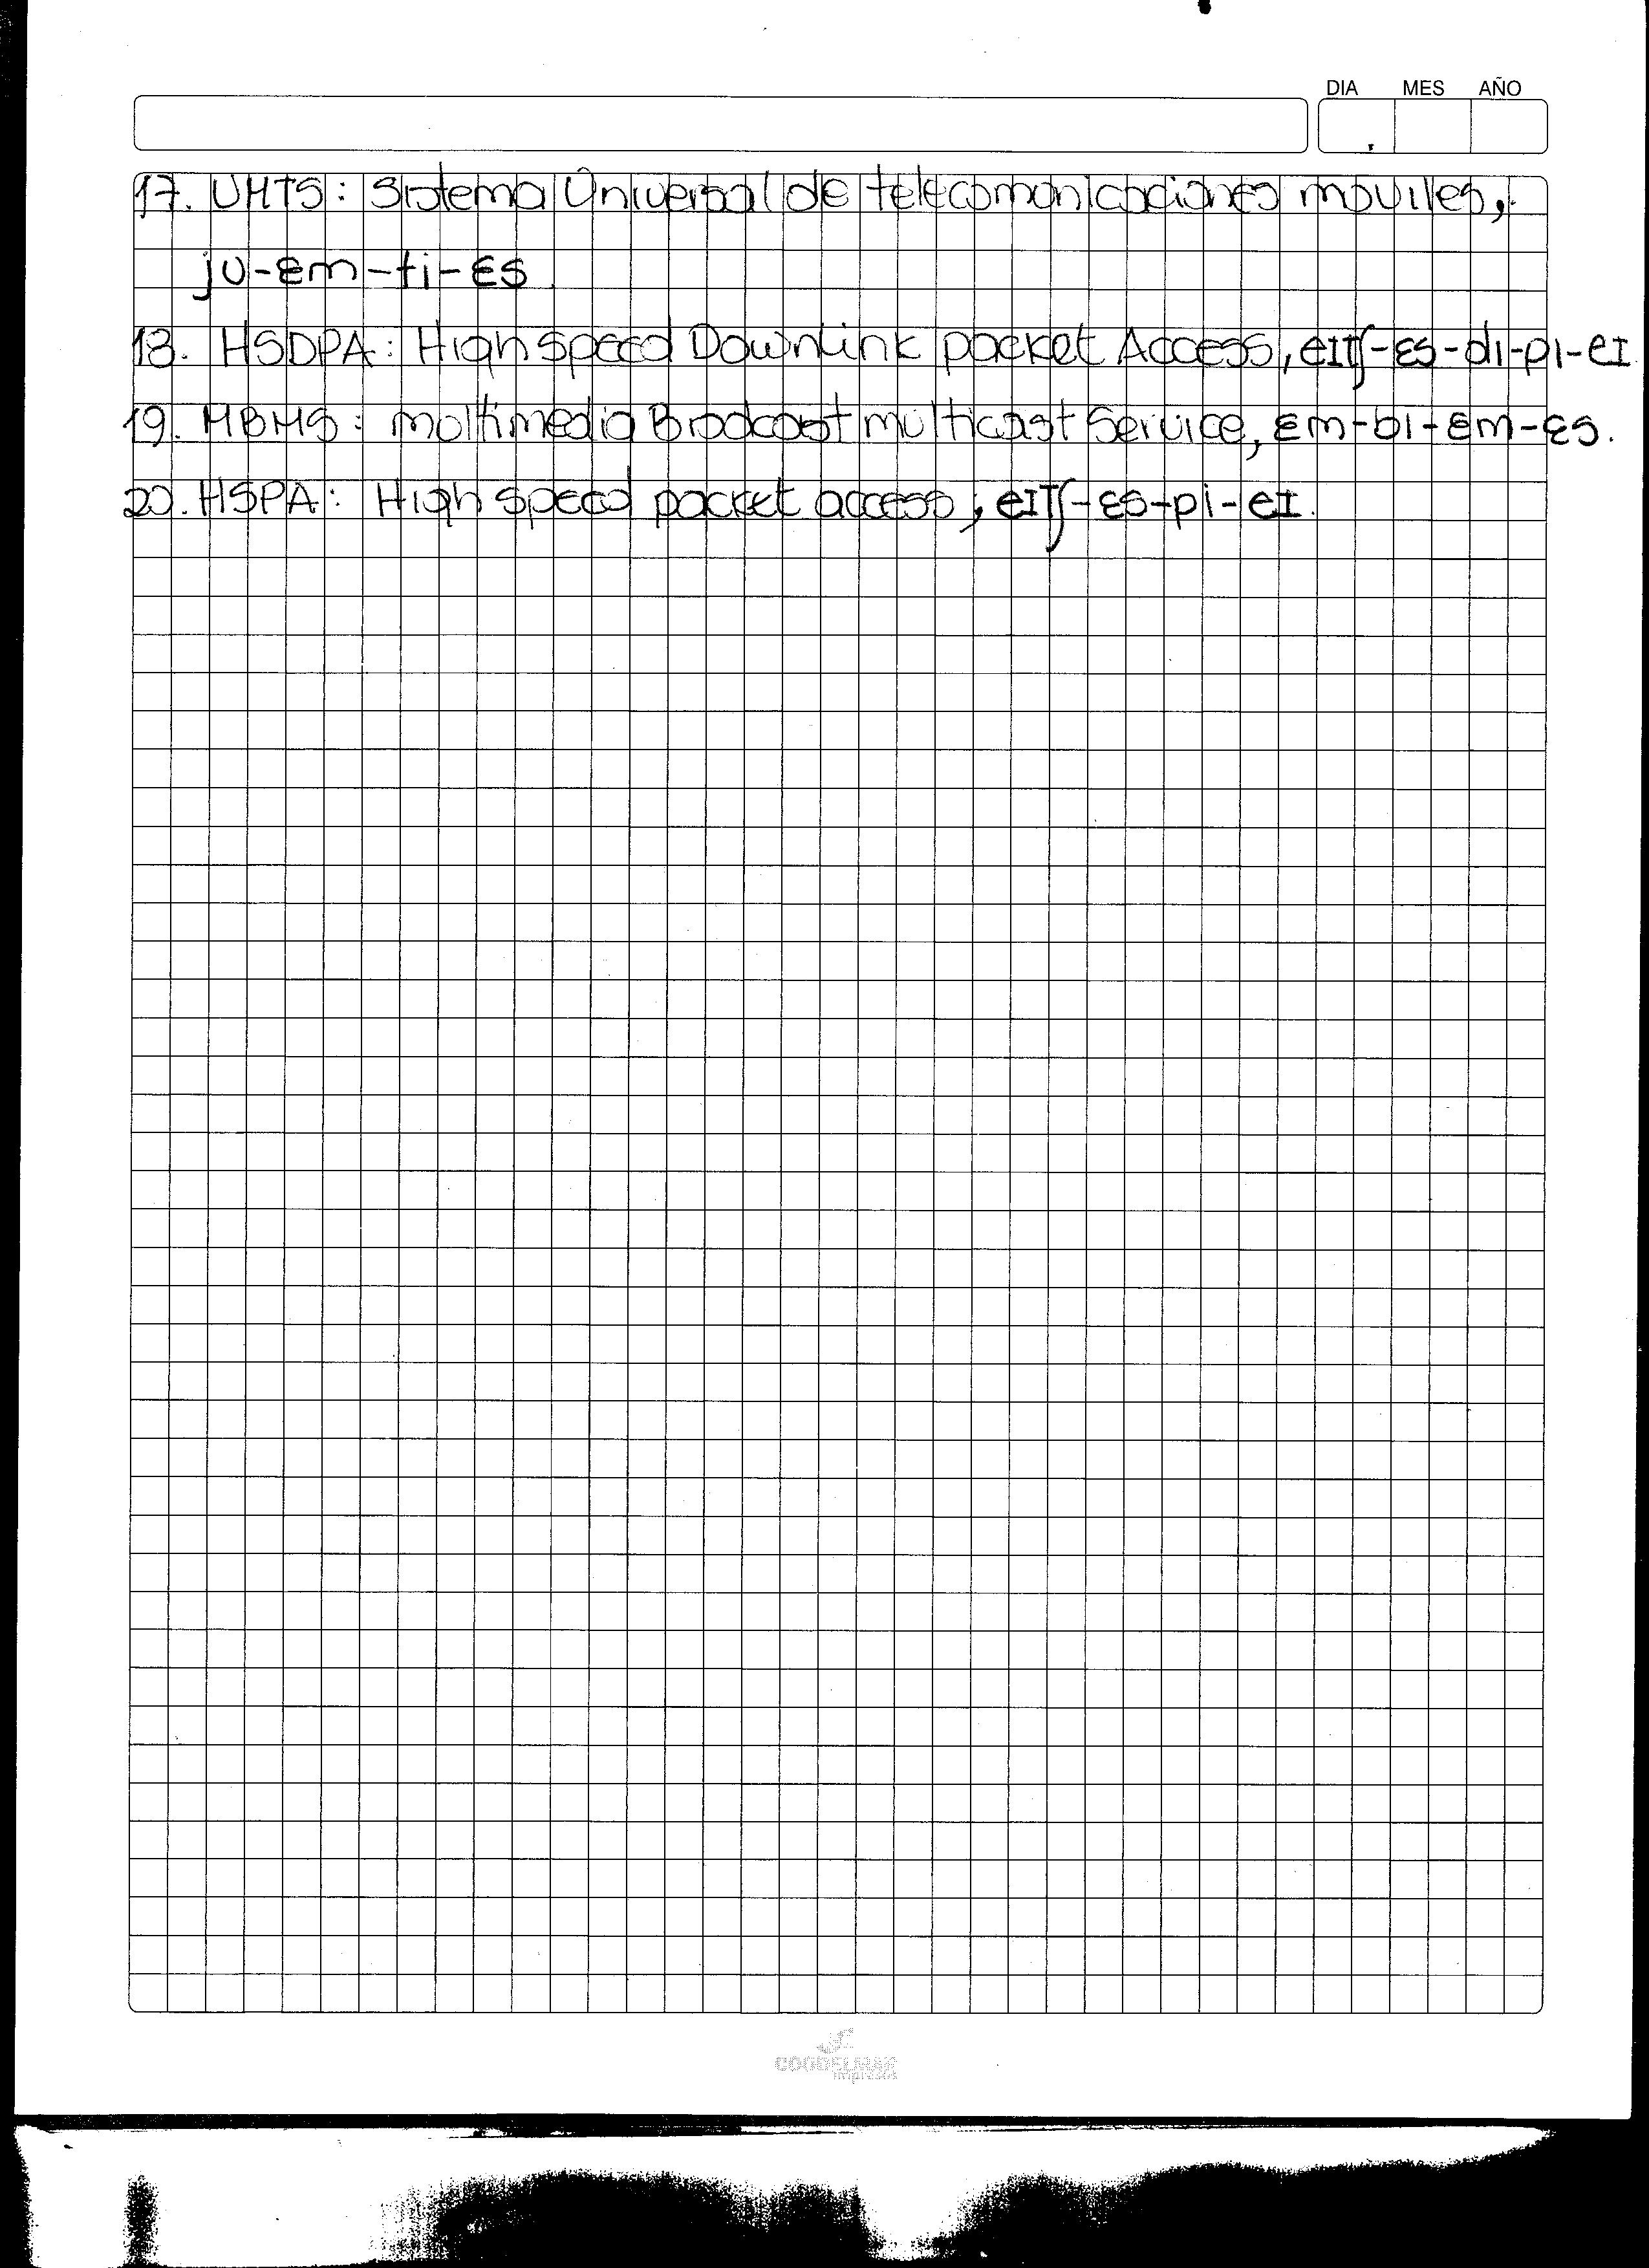 DIA MES AÑO
17. UMTS: Sistema Universal de telecomonicaciones moviles,
ju-ɛm-ti-ɛs
18. HSDPA: High speed Downlink packet Access, eɪtʃ-ɛs-di-pi-eɪ
19. MBMS: moltimedia Brodcast multicast Service, ɛm-bi-ɛm-ɛs.
20. HSPA: High speed packet access, eɪtʃ-ɛs-pi-eɪ.
COGDELMAR
impresos